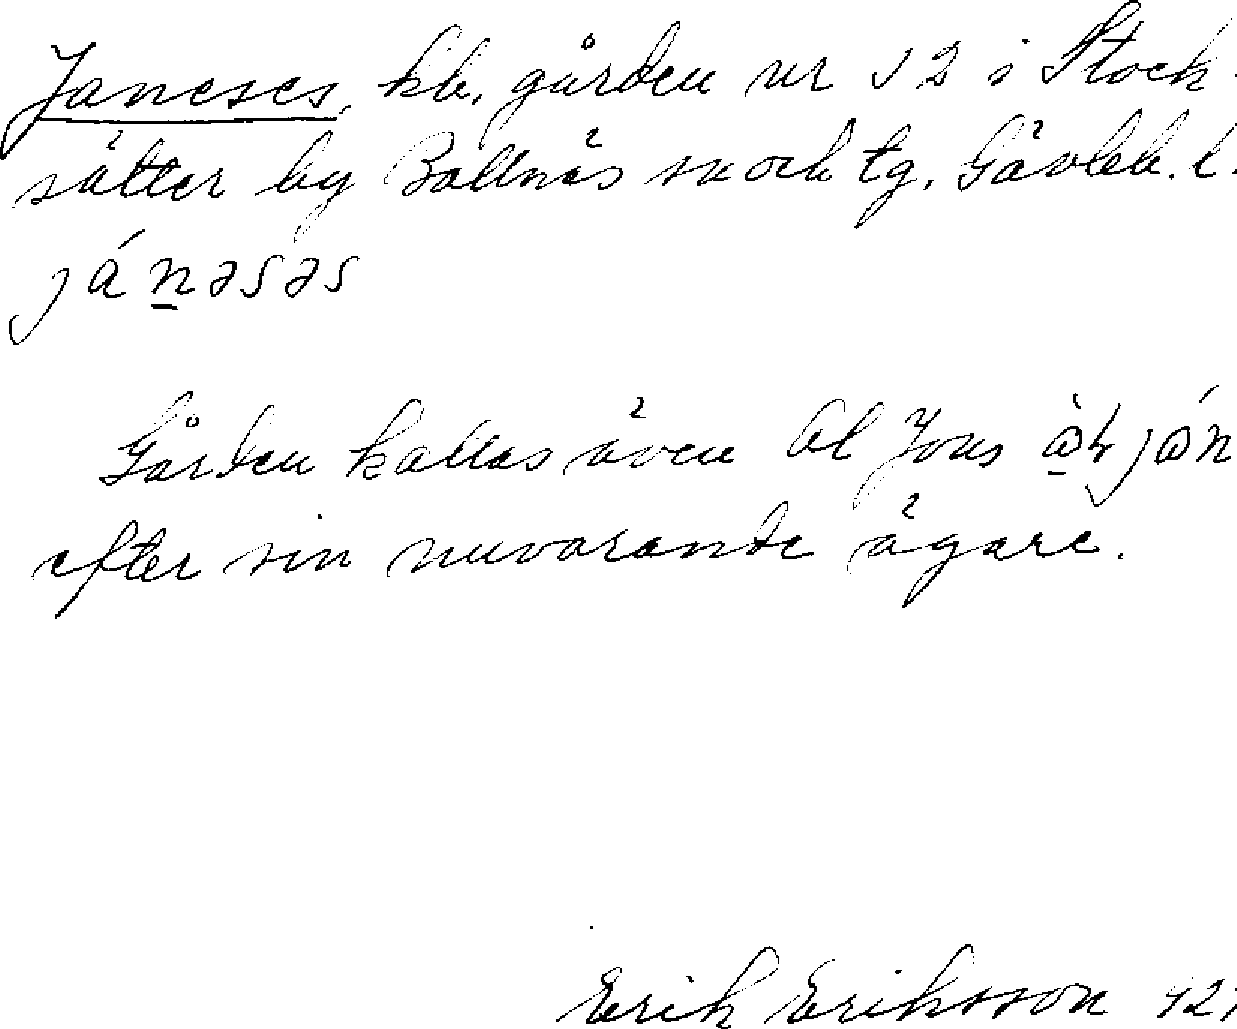 Janeses, kb. gården nr 12 i Stock-
sätter by Bollnäs sn och tg. Gävleb. l.
jánəsəs
Gården kallas även Ol Jons
efter sin nuvarande ägare.
Erik Eriksson